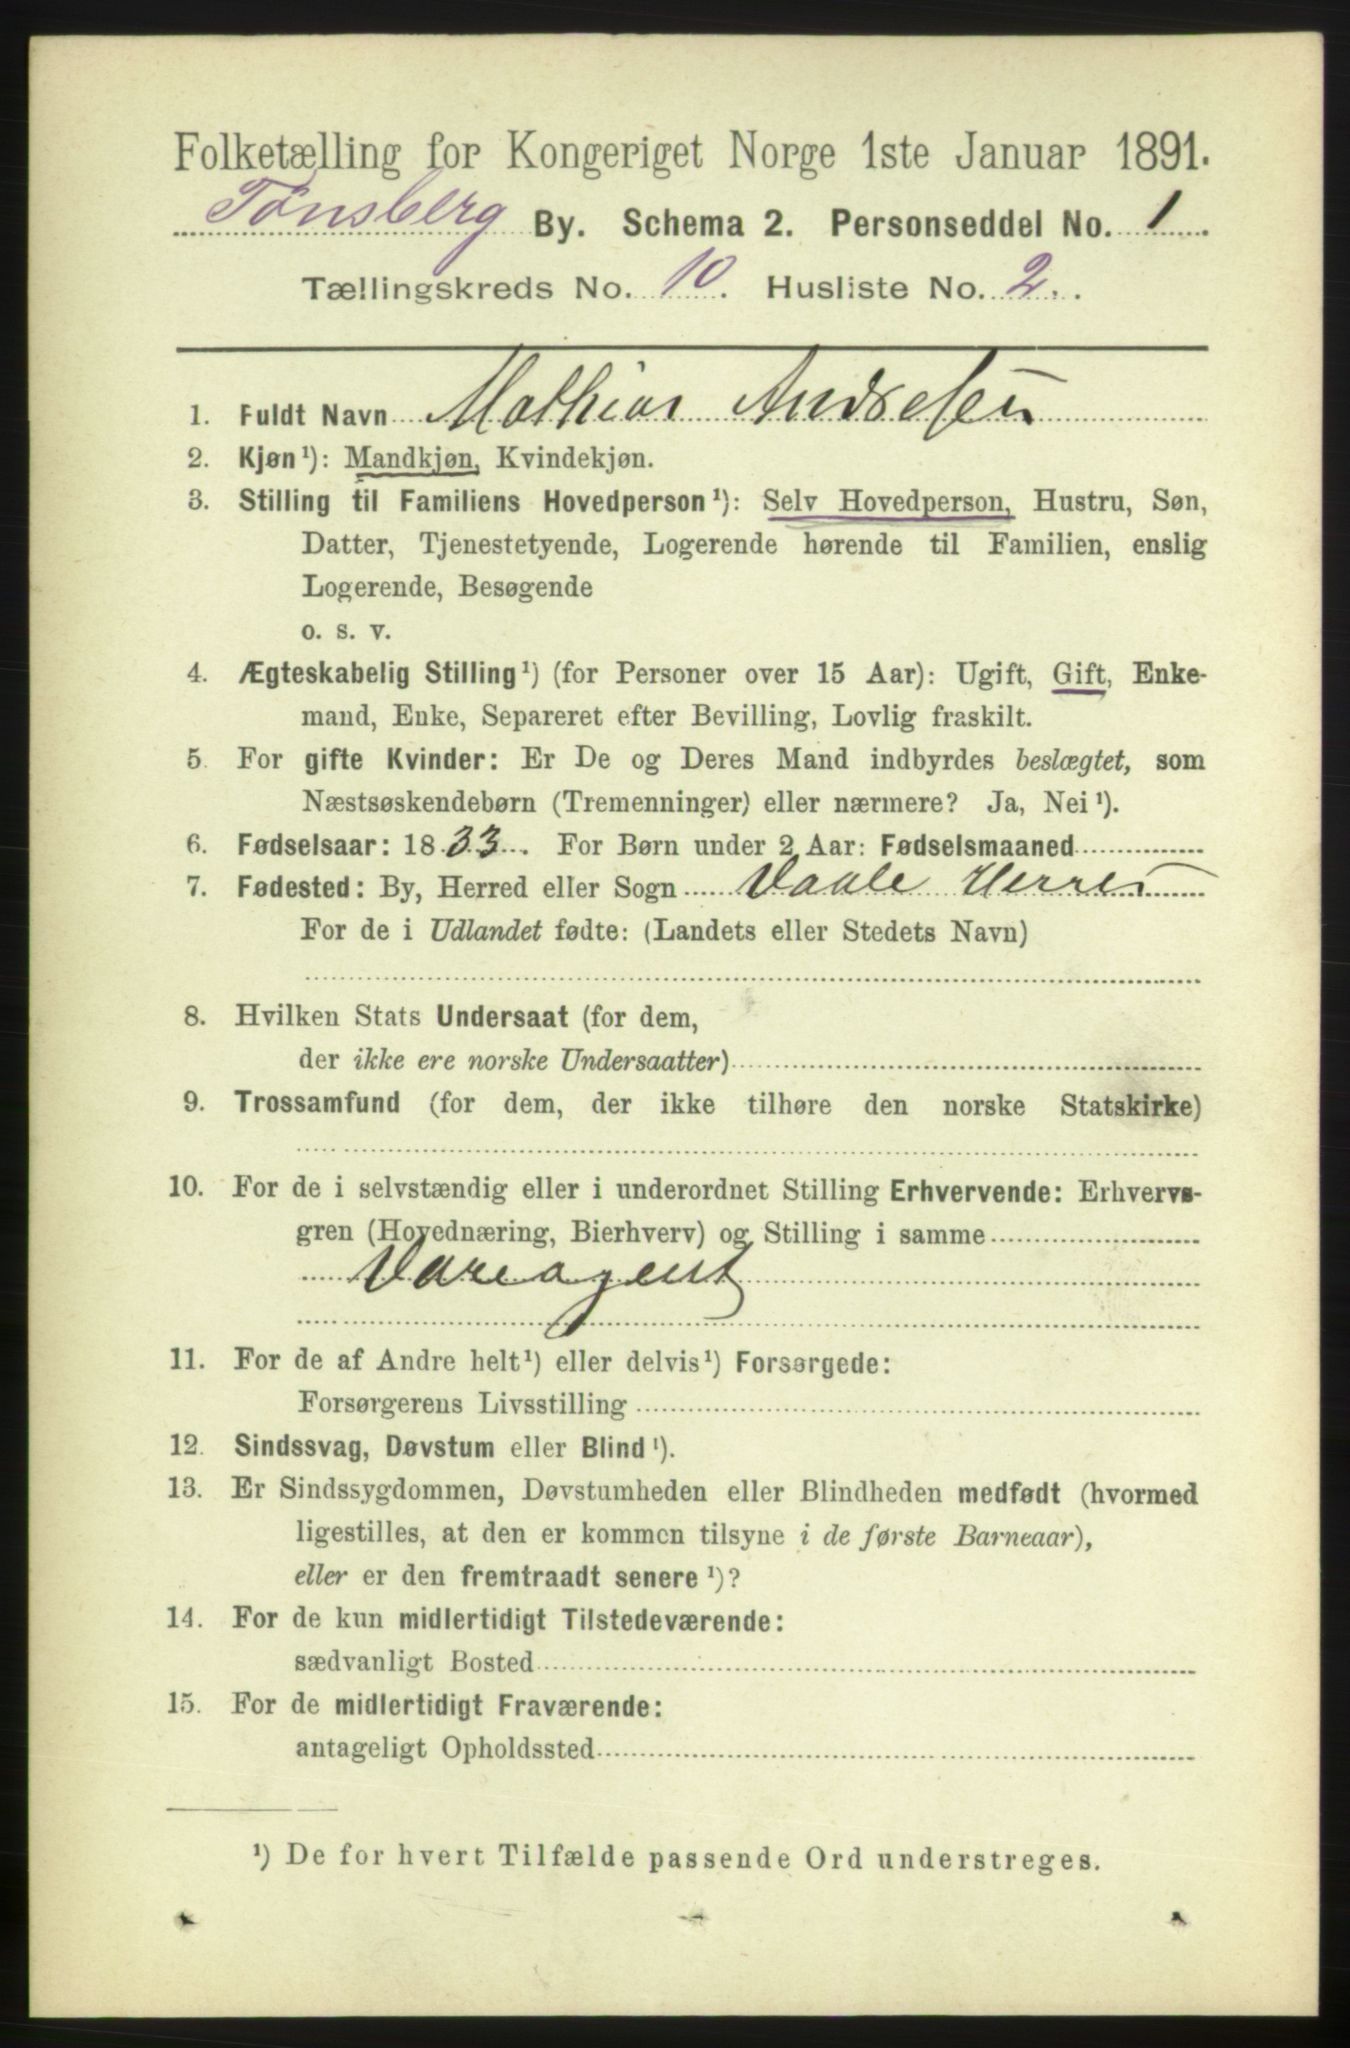 Folketælling for Kongeriget Norge 1ste Januar 1891.
Tønsberg By. Schema 2. Personseddel No. 1
Tællingskreds No. 10. Husliste No. 2.
1. Fuldt Navn Mathias Andresen
2. Kjøn¹): Mandkjøn, Kvindekjøn.
3. Stilling til Familiens Hovedperson¹): Selv Hovedperson, Hustru, Søn,
Datter, Tjenestetyende, Logerende hørende til Familien, enslig
Logerende, Besøgende
o. s. v.
4. Ægteskabelig Stilling¹) (for Personer over 15 Aar): Ugift, Gift, Enke-
mand, Enke, Separeret efter Bevilling, Lovlig fraskilt.
5. For gifte Kvinder: Er De og Deres Mand indbyrdes beslægtet, som
Næstsøskendebørn (Tremenninger) eller nærmere? Ja, Nei¹).
6. Fødselsaar: 1833. For Børn under 2 Aar: Fødselsmaaned
7. Fødested: By, Herred eller Sogn Vaale Herred
For de i Udlandet fødte: (Landets eller Stedets Navn)
8. Hvilken Stats Undersaat (for dem,
der ikke ere norske Undersaatter)
9. Trossamfund (for dem, der ikke tilhøre den norske Statskirke)
10. For de i selvstændig eller i underordnet Stilling Erhvervende: Erhvervs-
gren (Hovednæring, Bierhverv) og Stilling i samme
Vareagent
11. For de af Andre helt¹) eller delvis¹) Forsørgede:
Forsørgerens Livsstilling
12. Sindssvag, Døvstum eller Blind¹).
13. Er Sindssygdommen, Døvstumheden eller Blindheden medfødt (hvormed
ligestilles, at den er kommen tilsyne i de første Barneaar),
eller er den fremtraadt senere¹)?
14. For de kun midlertidigt Tilstedeværende:
sædvanligt Bosted
15. For de midlertidigt Fraværende:
antageligt Opholdssted
¹) De for hvert Tilfælde passende Ord understreges.